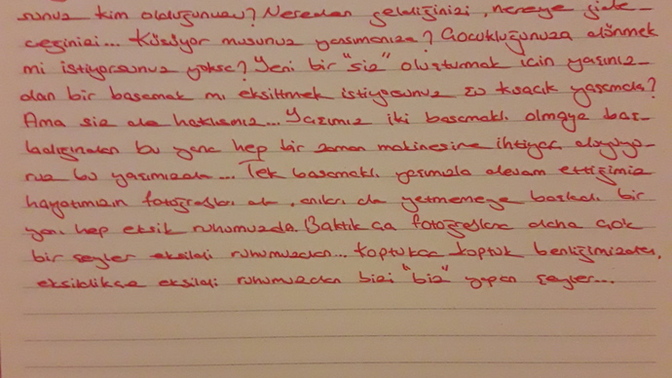 sunuz kim olduğunuzu? Nereden geldiğinizi, nereye gide-
ceğinizi... Küsüyor musunuz yansımanıza? Çocukluğunuza dönmek
mi istiyorsunuz yoksa? Yeni bir "siz" oluşturmak için yaşınız-
dan bir basamak mı eksiltmek istiyorsunuz şu kısacık yaşamda?
Ama siz de haklısınız... Yaşımız iki basamaklı olmaya baş-
ladığından bu yana hep bir zaman makinesine ihtiyaç duyuyo-
ruz bu yaşımızda... Tek basamaklı yaşımızla devam ettiğimiz
hayatımızın fotoğrafları da, anıları da yetmemeye başladı bir
yanı hep eksik ruhumuzda. Baktıkça fotoğraflara daha çok
bir şeyler eksildi ruhumuzdan... Koptukça koptuk benliğimizden,
eksildikçe eksildi ruhumuzdan bizi "biz" yapan şeyler...